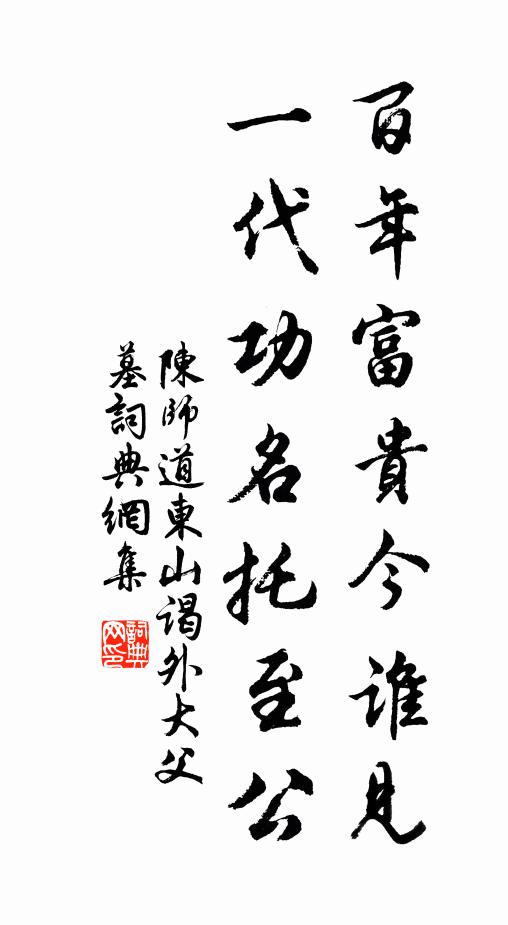 百年富貴今誰見
一代功名托至公
陳師道東山謁外大父
墓詞典網集
詞典
网印